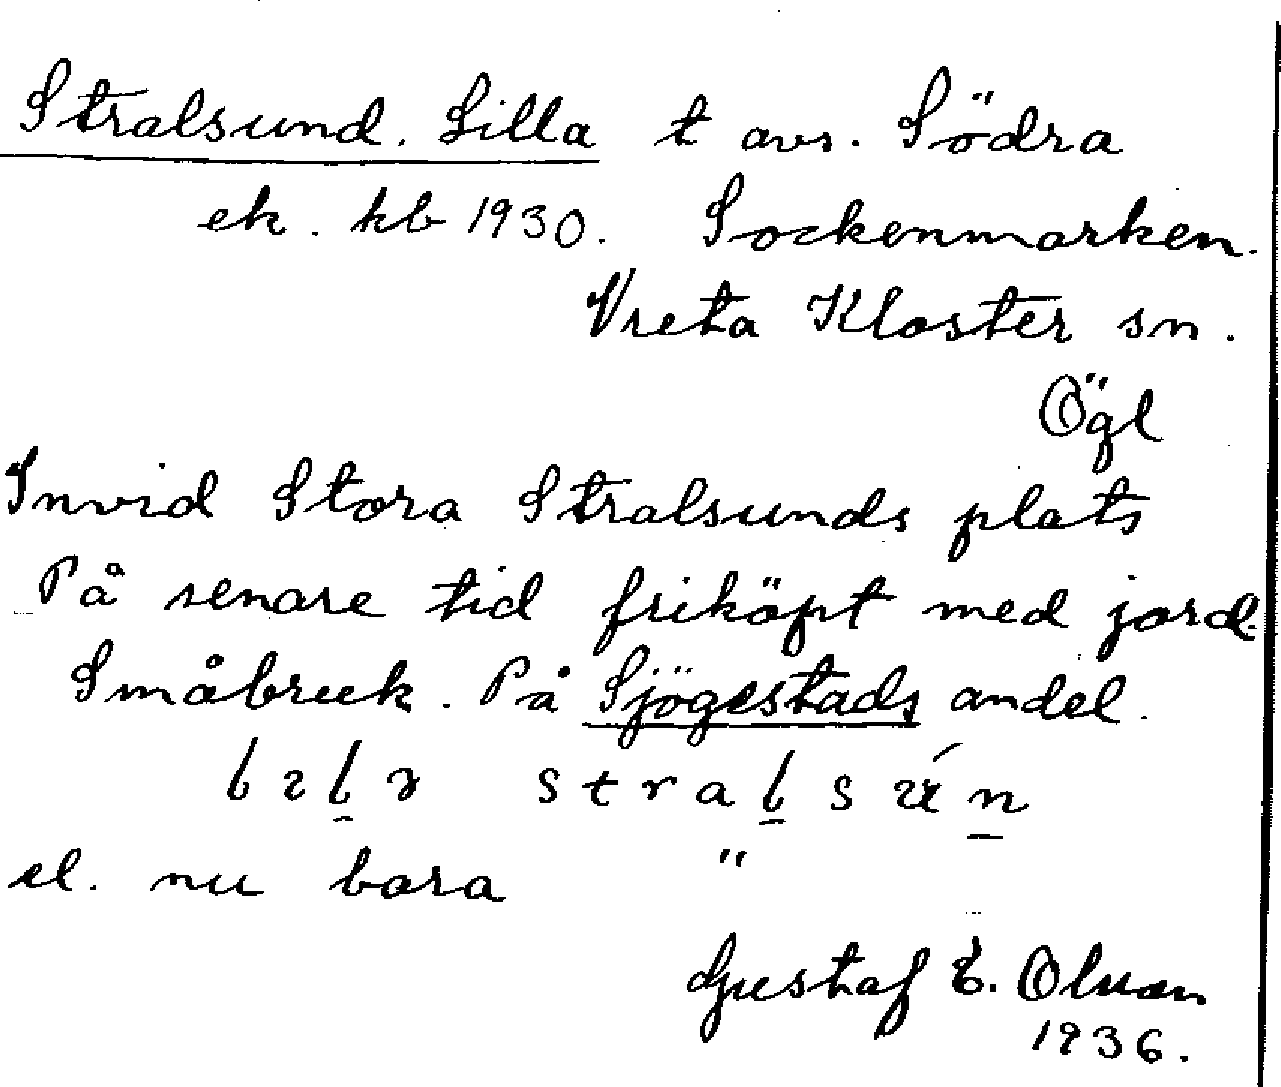 Stralsund. Lilla t avs. Södra
ek. kb 1930. Sockenmarken.
Vreta Kloster sn.
Ögl
Invid Stora Stralsunds plats
På senare tid friköpt med jord.
Småbruk. På Sjögestads andel.
el. nu bara "
Gustaf E. Olsson
1936.